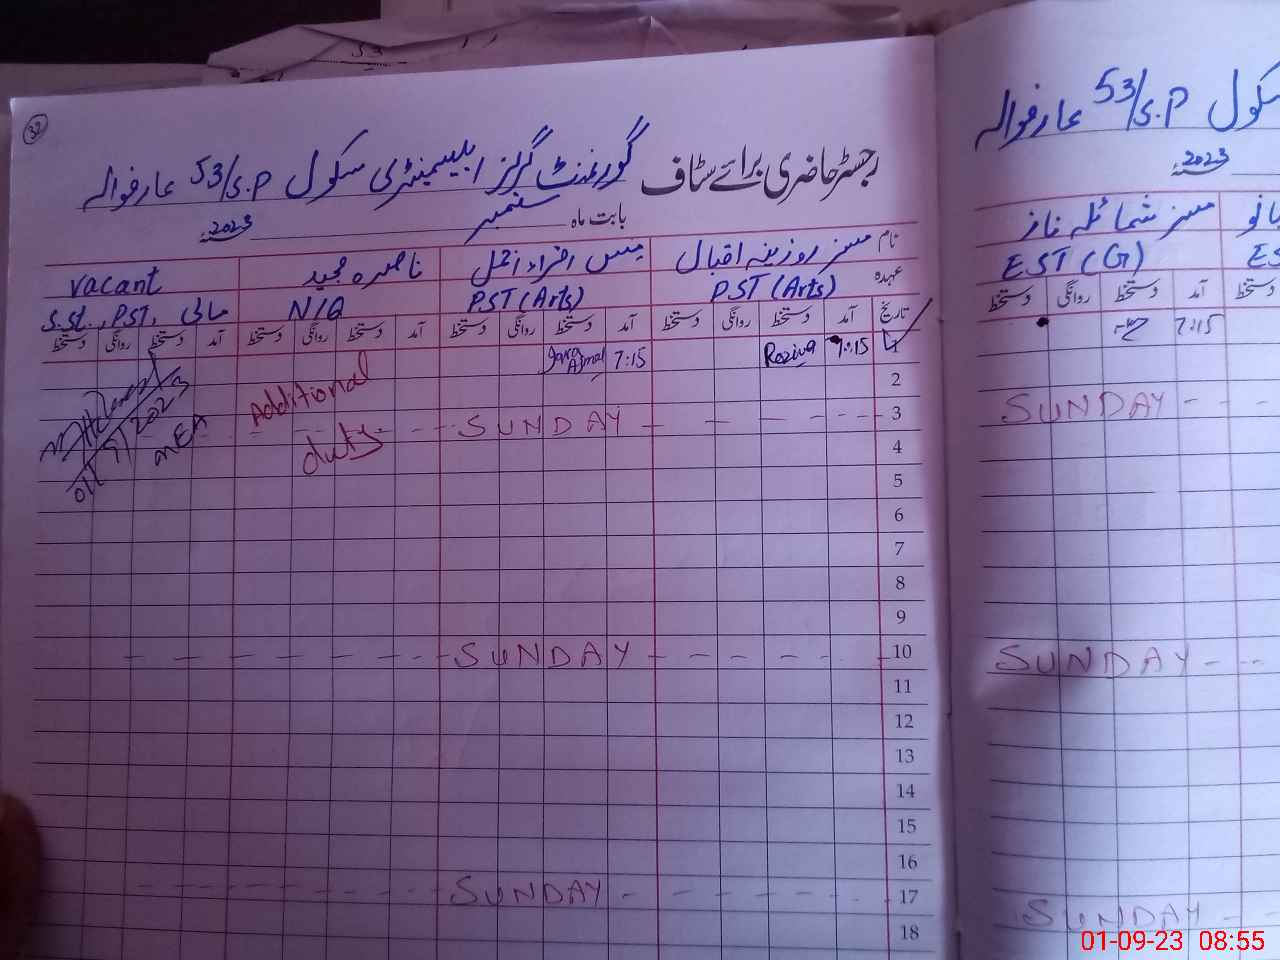 32
رجسٹر حاضری برائے سٹاف گورنمنٹ گرلز ایلیمینٹری سکول 53/S.P عارفوالہ
بابت ماہ ستمبر 2023
نام مسز روزینہ اقبال مس اقراء اجمل ناصرہ مجید vacant
عہدہ PST (Arts) PST (Arts) N/Q مالی ,PST ,S.St.
تاریخ آمد دستخط روانگی دستخط آمد دستخط روانگی دستخط آمد دستخط روانگی دستخط آمد دستخط روانگی دستخط
1 7:15 Rozina 7:15 Iqra Ajmal
Additional
duty
01/9/2023
MEA
2
3 SUNDAY
4
5
6
7
8
9
10 SUNDAY
11
12
13
14
15
16
17 SUNDAY
18
سکول 53/S.P عارفوالہ
2023
مسز شمائلہ ناز بانو
EST (G) ES
آمد دستخط روانگی دستخط دستخط
7:15
SUNDAY
SUNDAY
SUNDAY
01-09-23 08:55